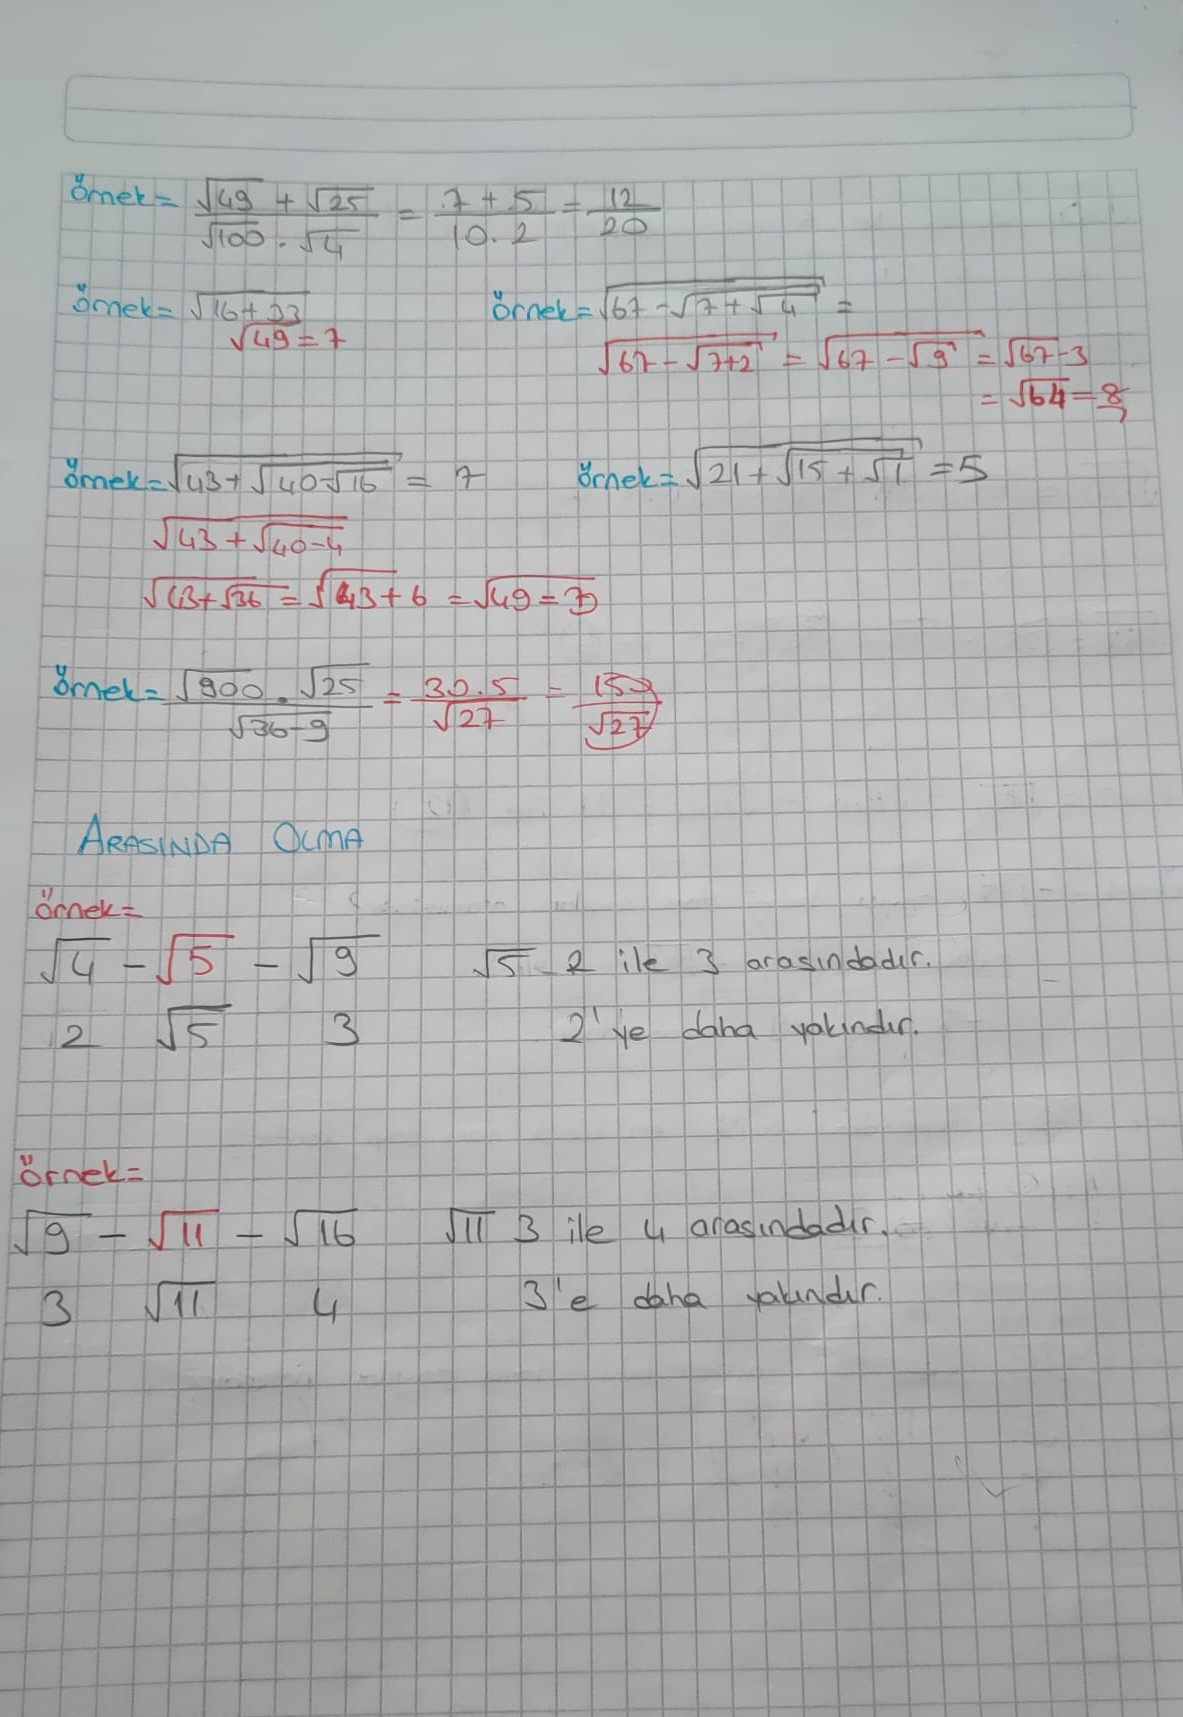 Örnek= √49 + √25 / √100 . √4 = 7 + 5 / 10 . 2 = 12 / 20
Örnek= √16+33
√49 = 7
Örnek= √67 - √7 + √4 =
√67 - √7+2 = √67 - √9 = √67-3
= √64 = 8
Örnek= √43 + √40-√16 = 7
√43 + √40-4
√43+√36 = √43+6 = √49 = 7
Örnek= √21 + √15 + √1 = 5
Örnek= √900 . √25 / √36-9 = 30.5 / √27 = 150 / √27
ARASINDA OLMA
Örnek=
√4 - √5 - √9 √5 2 ile 3 arasındadır.
2 √5 3 2'ye daha yakındır.
Örnek=
√9 - √11 - √16 √11 3 ile 4 arasındadır.
3 √11 4 3'e daha yakındır.